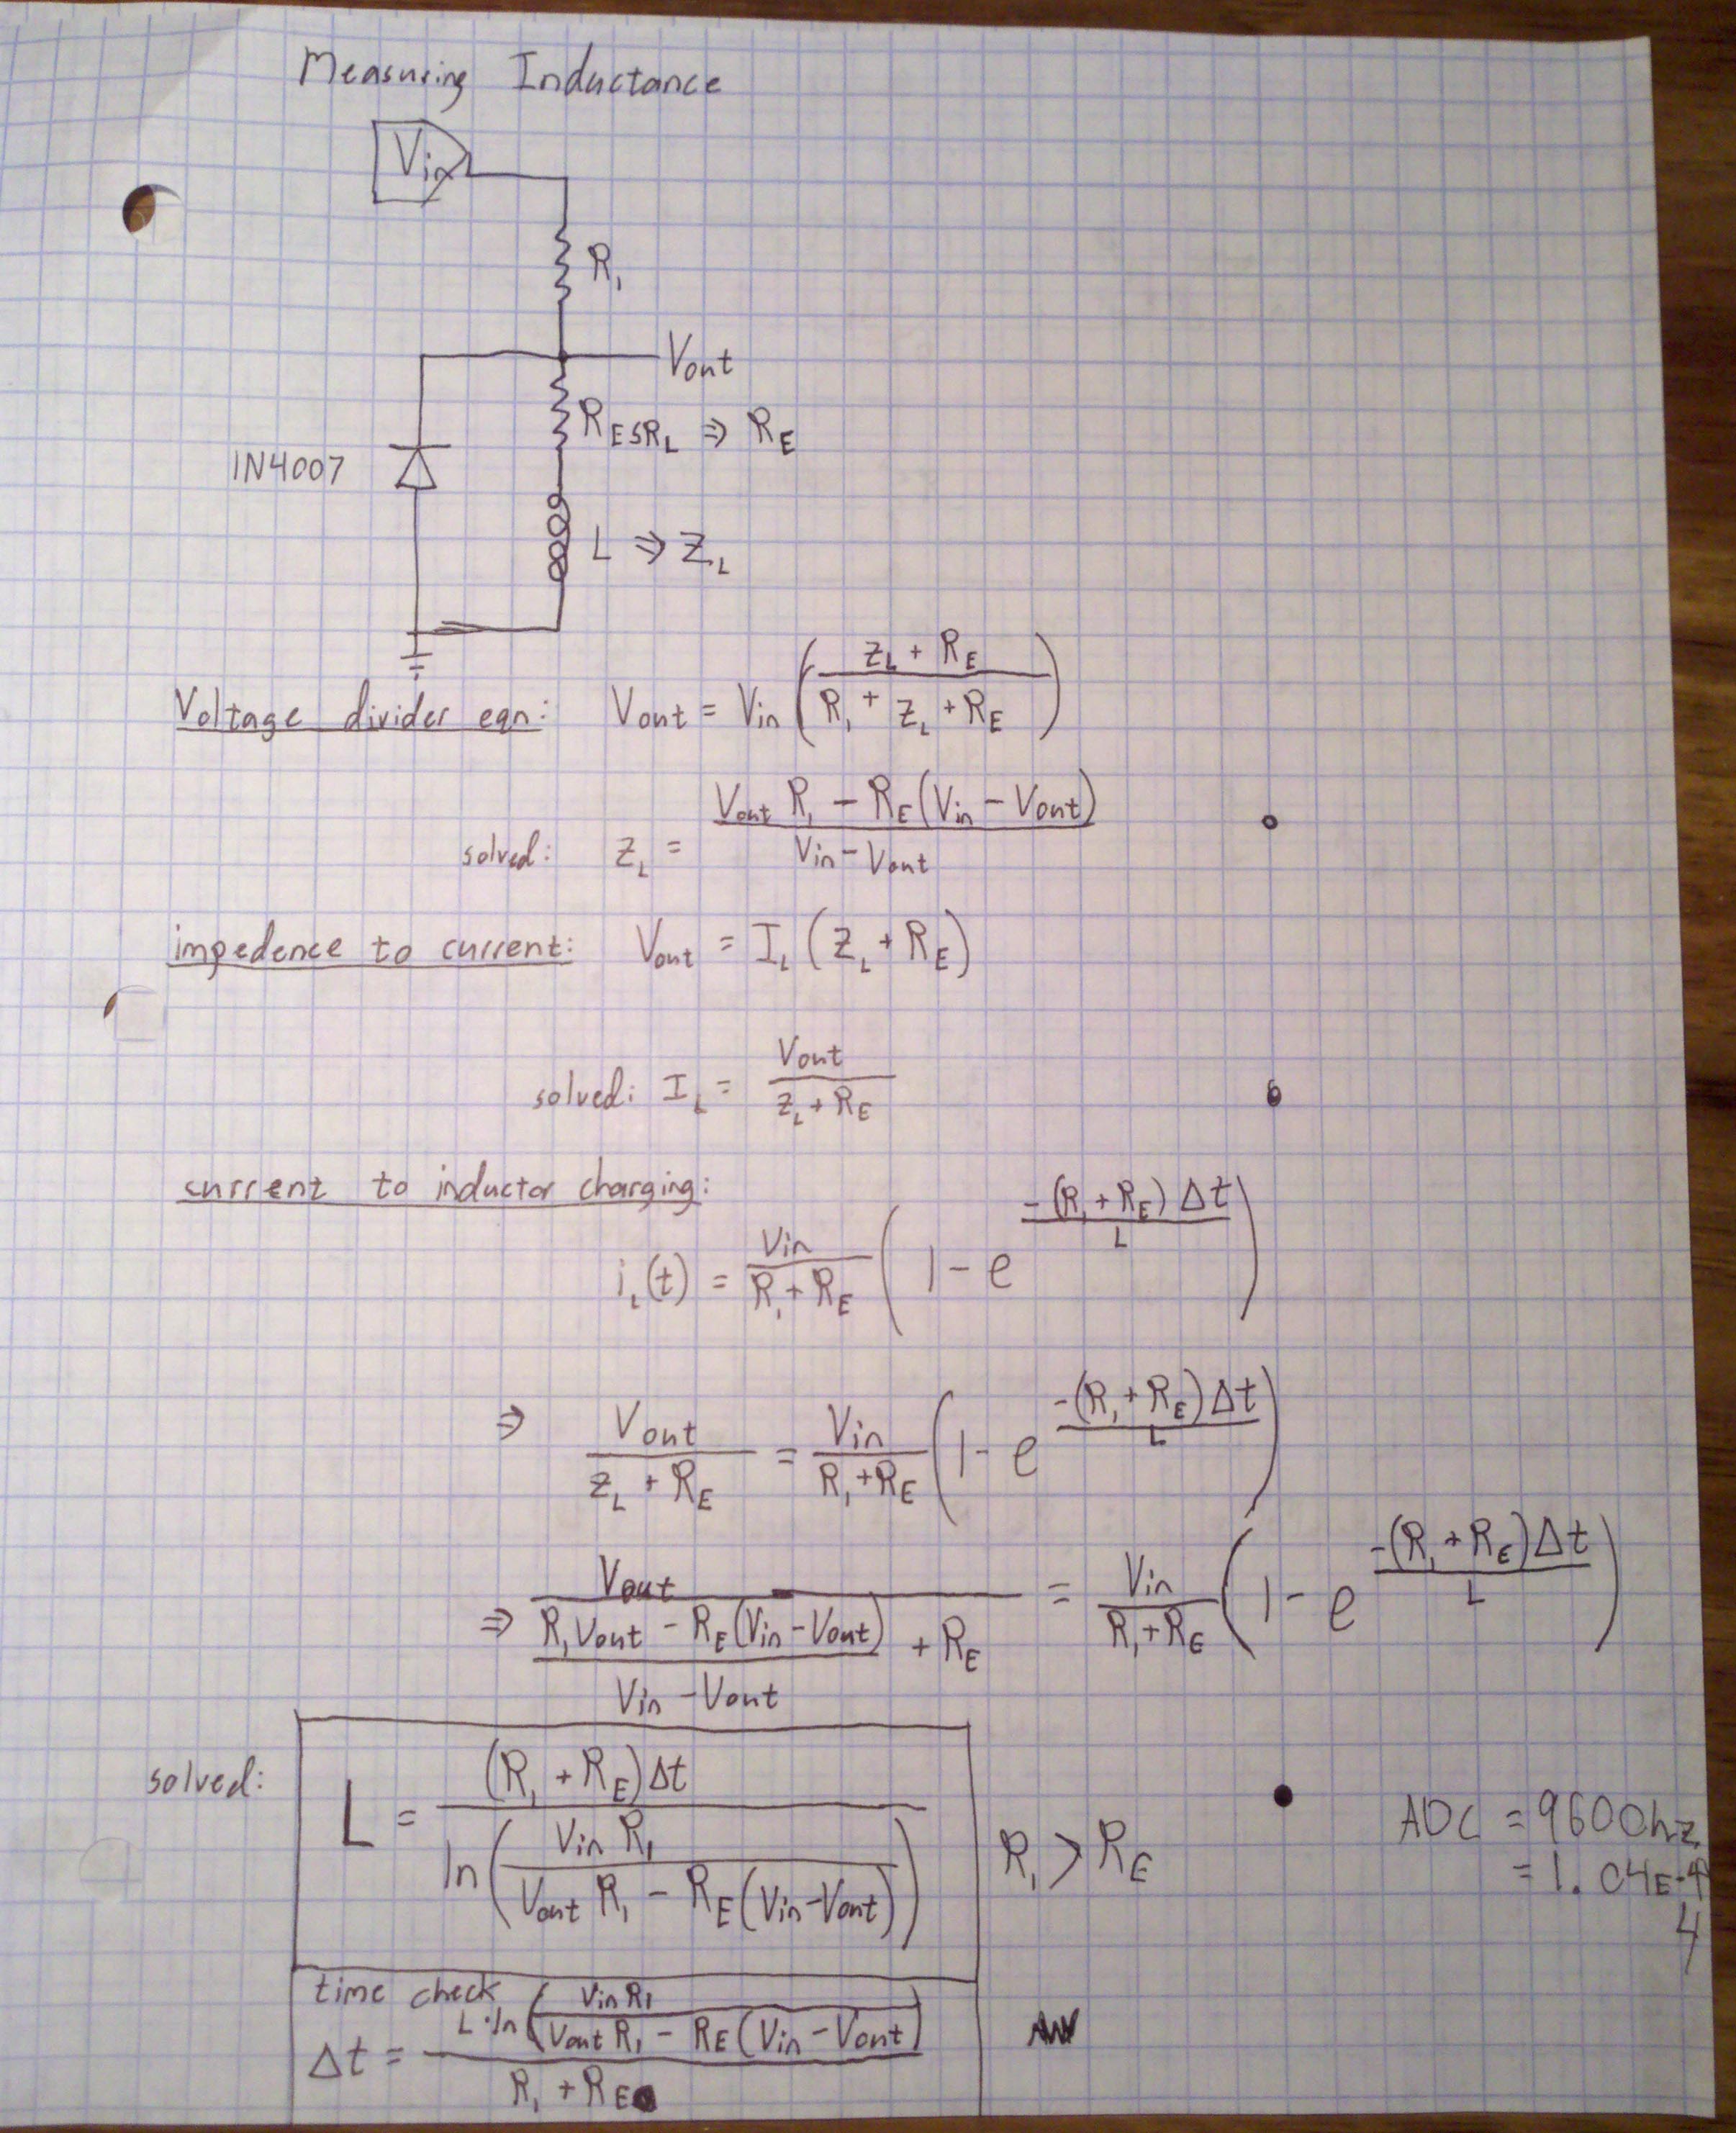 Measuring Inductance
Vin
R₁
Vout
R_ESR_L ⇒ R_E
1N4007
L ⇒ Z_L
Voltage divider eqn: Vout = Vin ( (Z_L + R_E) / (R₁ + Z_L + R_E) )
solved: Z_L = (Vout R₁ − R_E(Vin − Vout)) / (Vin − Vout)
impedence to current: Vout = I_L (Z_L + R_E)
solved: I_L = Vout / (Z_L + R_E)
current to inductor charging:
i_L(t) = Vin / (R₁ + R_E) ( 1 − e^(−(R₁ + R_E) Δt / L) )
⇒ Vout / (Z_L + R_E) = Vin / (R₁ + R_E) ( 1 − e^(−(R₁ + R_E) Δt / L) )
⇒ Vout / ( (R₁Vout − R_E(Vin − Vout)) / (Vin − Vout) + R_E ) = Vin / (R₁ + R_E) ( 1 − e^(−(R₁ + R_E) Δt / L) )
solved: L = (R₁ + R_E) Δt / ln( Vin R₁ / (Vout R₁ − R_E(Vin − Vout)) )
R₁ > R_E
ADC = 9600hz
= 1.04E-4
4
time check
Δt = L · ln( Vin R₁ / (Vout R₁ − R_E(Vin − Vout)) ) / (R₁ + R_E)